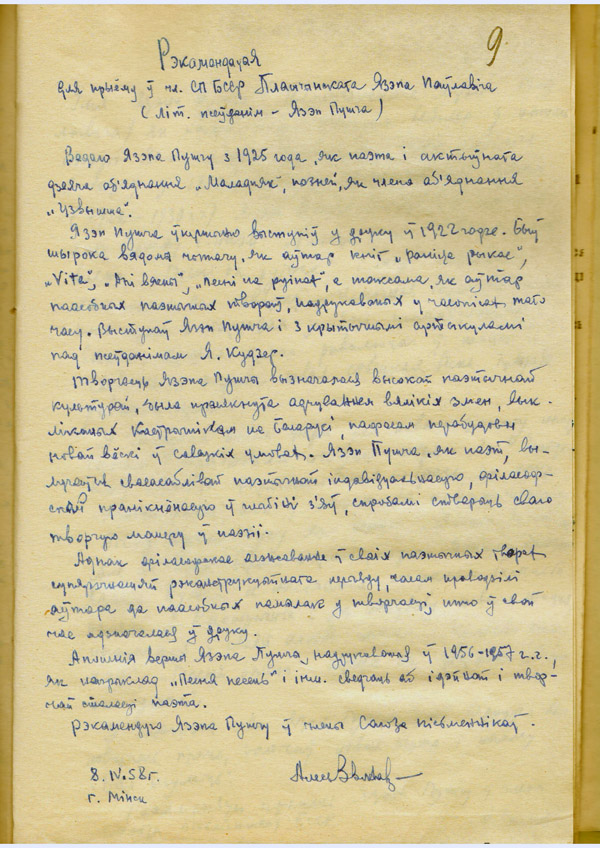 9.
Рэкамендацыя
для прыёму ў чл. СП БССР Плашчынскага Язэпа Паўлавіча
(Літ. псеўданім – Язэп Пушча)
Ведаю Язэпа Пушчу з 1925 года, як паэта і актыўнага
дзеяча аб'яднання „Маладняк", позней, як члена аб'яднання
„Узвышша".
Язэп Пушча ўпершыню выступіў у друку ў 1922 годзе. Быў
шырока вядомы чытачу, як аўтар кніг „Раніца рыкае",
„Vita", „Дні вясны", „Песні на руінах", а таксама, як аўтар
паасобных паэтычных твораў, надрукаваных у часопісах таго
часу. Выступаў Язэп Пушча і з крытычнымі артыкуламі
пад псеўданімам Я. Кудзер.
Творчасць Язэпа Пушчы вызначалася высокай паэтычнай
культурай, была прасякнута адчуваннем вялікіх змен, вык-
ліканых Кастрычнікам на Беларусі, пафасам перабудовы
новай вёскі ў савецкіх умовах. Язэп Пушча, як паэт, вы-
лучаўся своеасаблівай паэтычнай індывідуальнасцю, філасоф-
скай пранікнёнасцю ў глыбіні з'яў, спробамі стварыць сваю
творчую манеру ў паэзіі.
Аднак філасофскае асэнсаванне ў сваіх паэтычных творах
супярэчнасцей рэканструкцыйнага перыяду, часам прыводзілі
аўтара да паасобных памылак у творчасці, што ў свой
час адзначалася ў друку.
Апошнія вершы Язэпа Пушчы, надрукаваныя ў 1956–1957 г.г.,
як напрыклад „Песня песень" і інш. сведчаць аб ідэйнай і твор-
чай сталасці паэта.
Рэкамендую Язэпа Пушчу ў члены Саюза пісьменнікаў.
8.IV.58 г.
г. Мінск
Алесь